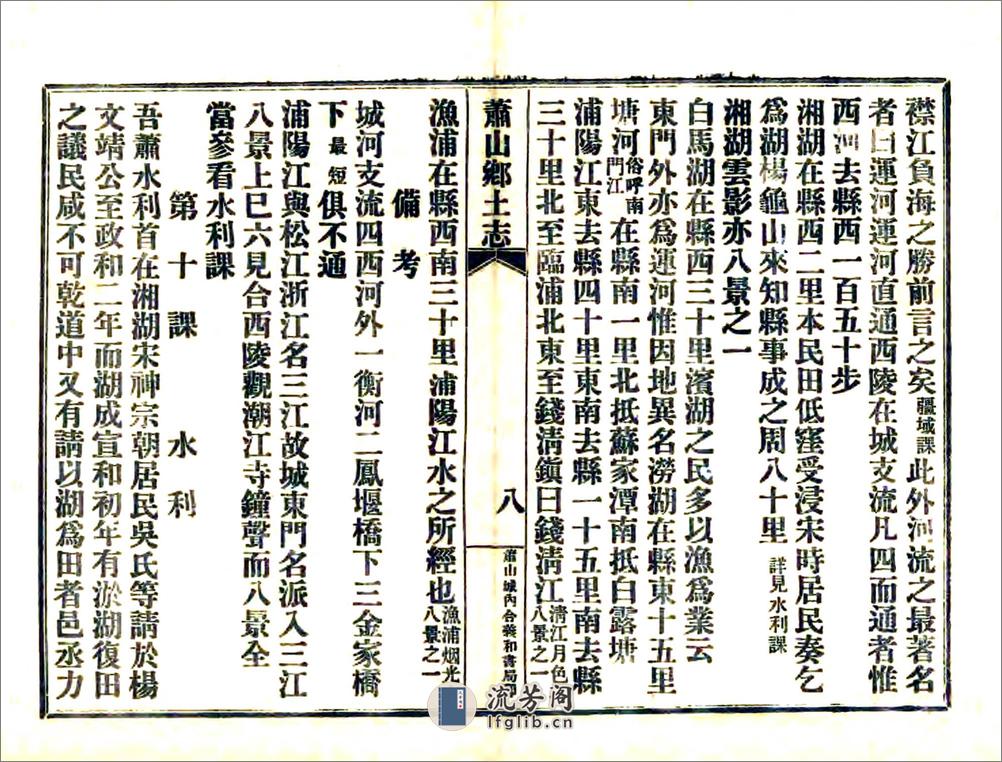 襟江負海之勝前言之矣疆域課此外河流之最著名
者曰運河運河直通西陵在城支流凡四而通者惟
西河去縣西一百五十步
湘湖在縣西二里本民田低窪受浸宋時居民奏乞
爲湖楊龜山來知縣事成之周八十里詳見水利課
湘湖雲影亦八景之一
白馬湖在縣西三十里濱湖之民多以漁爲業云
東門外亦爲運河惟因地異名澇湖在縣東十五里
塘河俗呼南門江在縣南一里北抵蘇家潭南抵白露塘
浦陽江東去縣四十里東南去縣一十五里南去縣
三十里北至臨浦北東至錢淸鎭曰錢淸江淸江月色八景之一
蕭山鄉土志
八
蕭山城內合義和書局印
漁浦在縣西南三十里浦陽江水之所經也漁浦烟光八景之一
備考
城河支流四西河外一衡河二鳳堰橋下三金家橋
下最短俱不通
浦陽江與松江浙江名三江故城東門名派入三江
八景上巳六見合西陵觀潮江寺鐘聲而八景全
當參看水利課
第十課 水利
吾蕭水利首在湘湖宋神宗朝居民吳氏等請於楊
文靖公至政和二年而湖成宣和初年有淤湖復田
之議民咸不可乾道中又有請以湖爲田者邑丞力
流芳阁
lfglib.cn